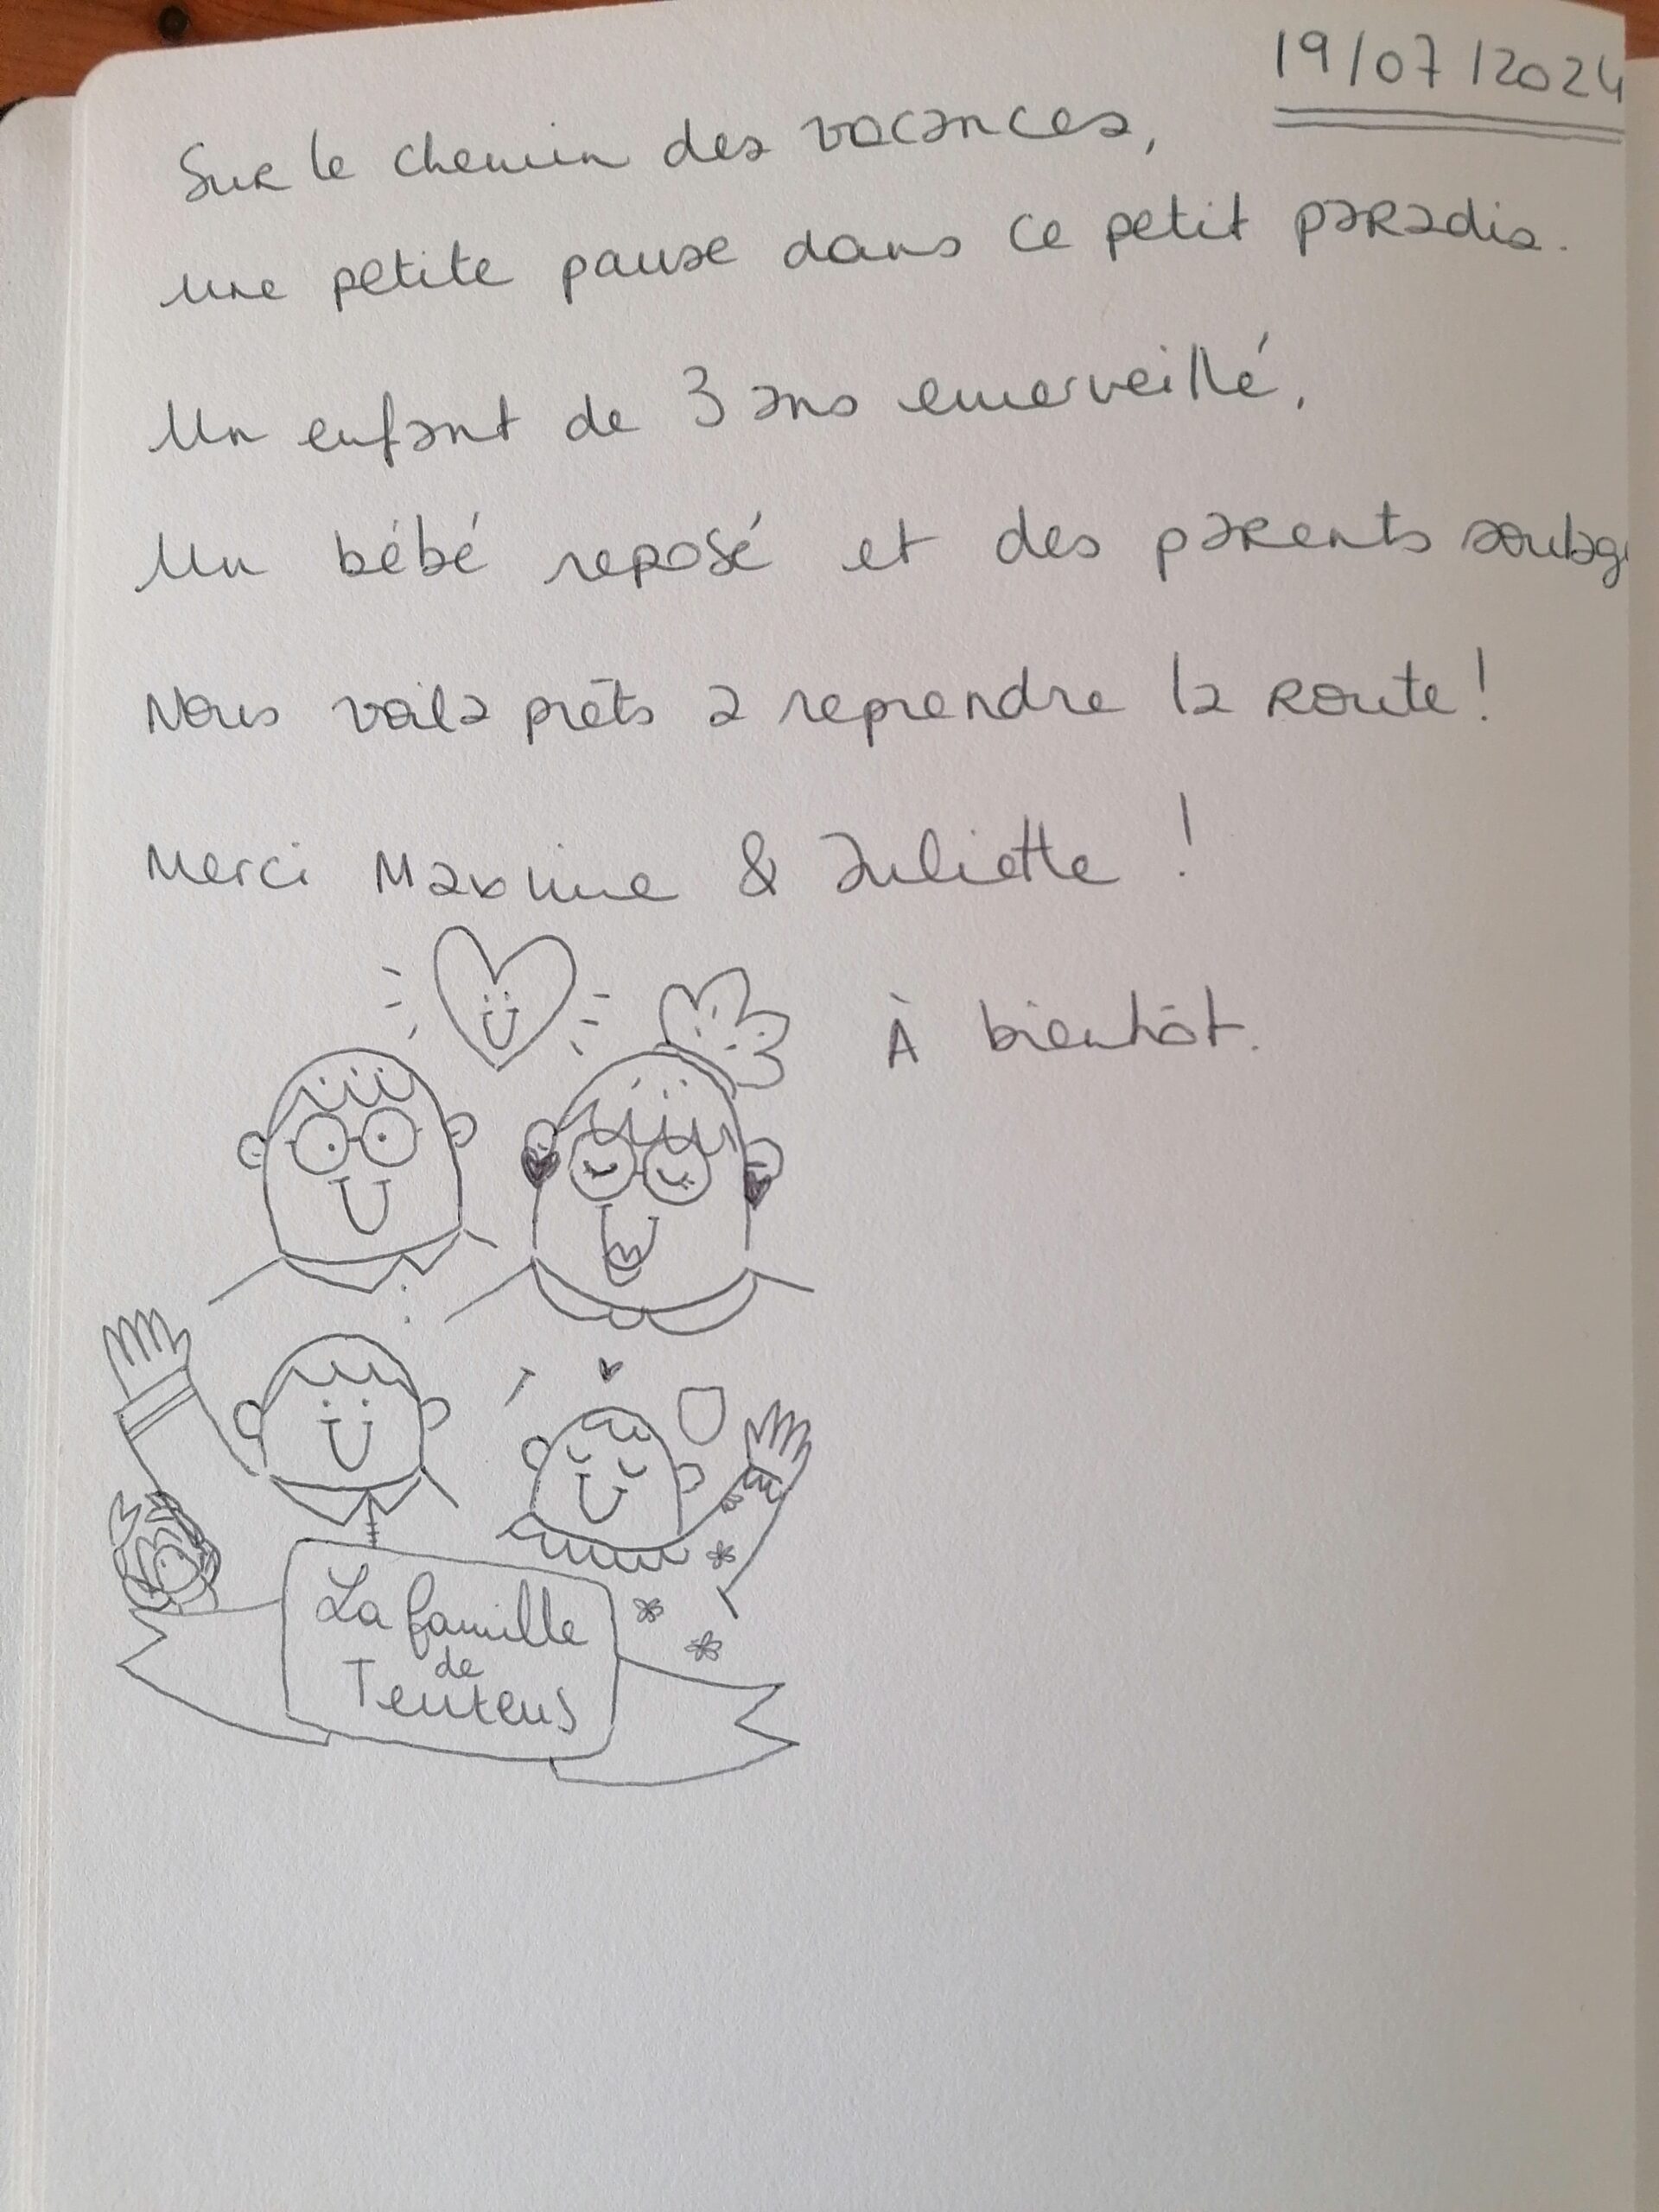 19/07/2024
Sur le chemin des vacances,
une petite pause dans ce petit paradis.
Un enfant de 3 ans emerveillé,
Un bébé reposé et des parents
Nous voila prêts a reprendre la route!
Merci Maxime & Juliette !
À bientôt.
La famille
de